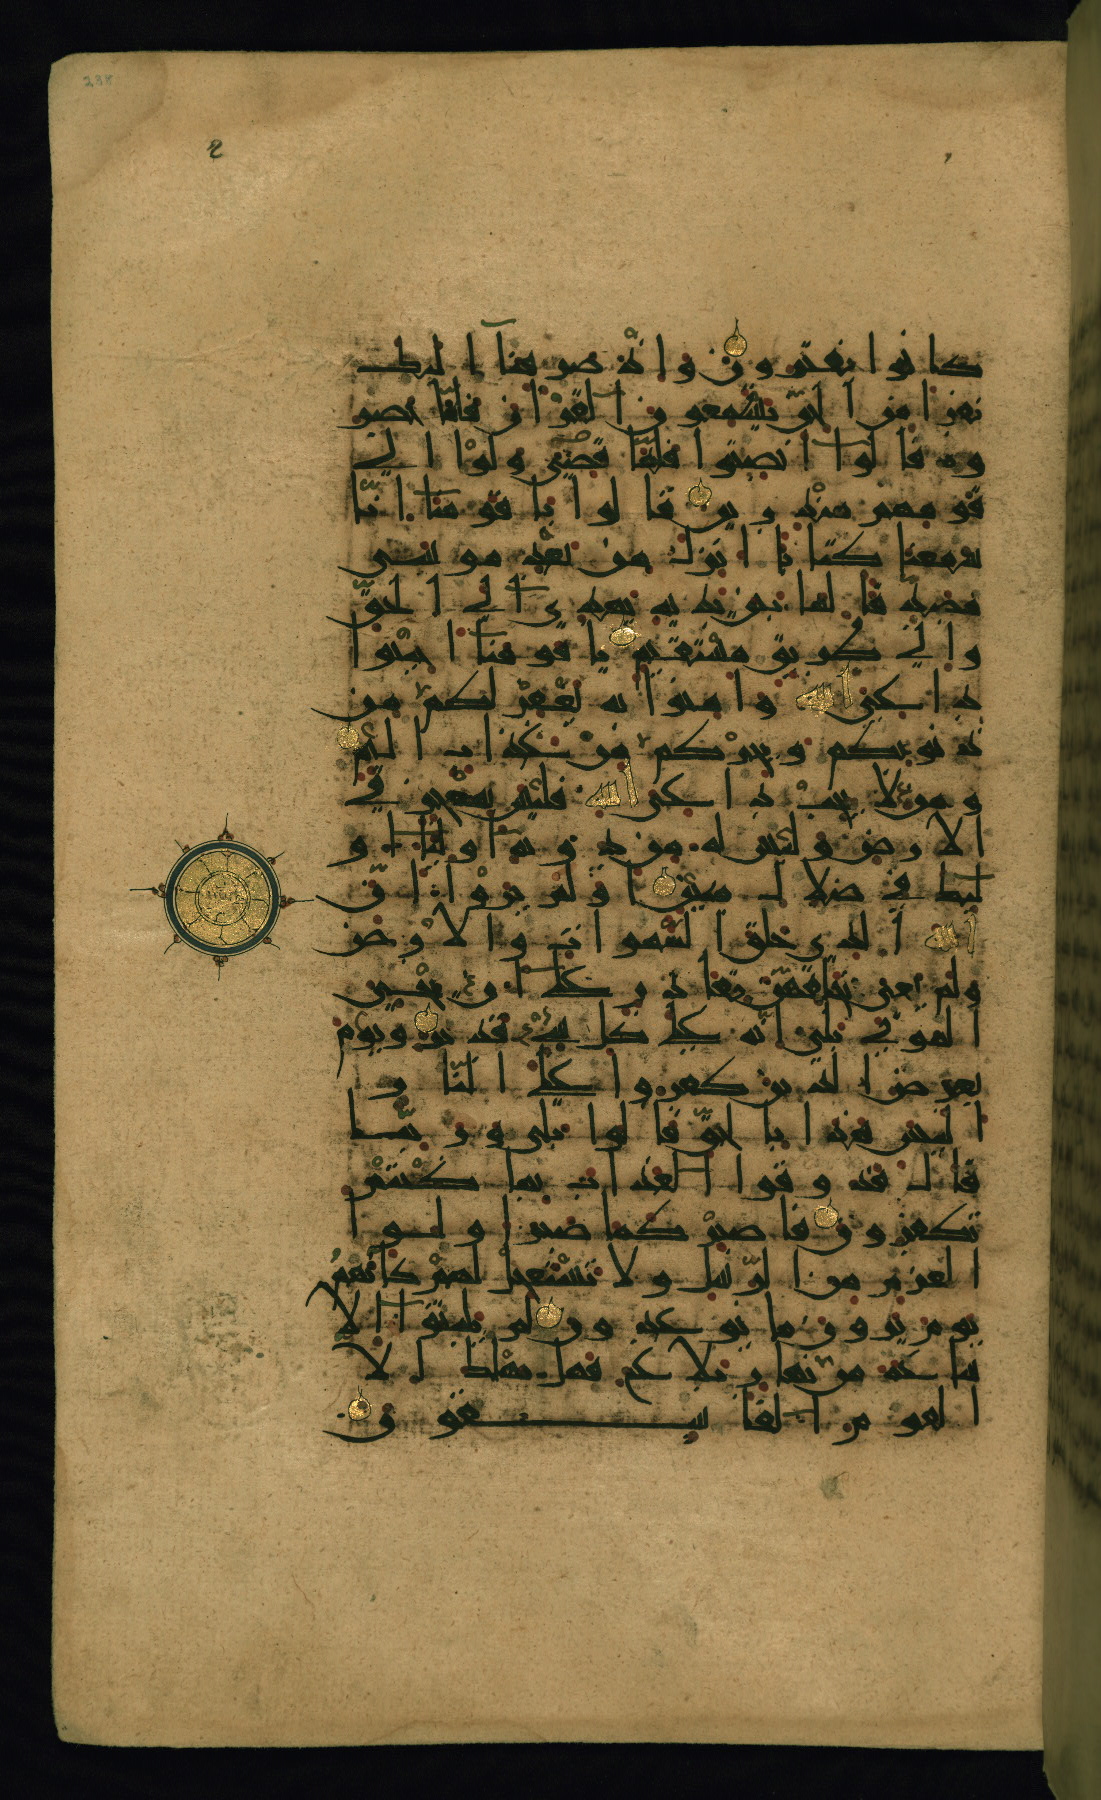 238
2
كانوا يفترون واذ صرفنا اليك
نفرا من الجن يستمعون القران فلما حضر
وه قالوا انصتوا فلما قضي ولوا الى
قومهم منذرين قالوا يا قومنا انا
سمعنا كتابا انزل من بعد موسى
مصدقا لما بين يديه يهدي الى الحق
والى طريق مستقيم يا قومنا اجيبوا
داعي الله وامنوا به يغفر لكم من
ذنوبكم ويجركم من عذاب اليم
ومن لا يجب داعي الله فليس بمعجز في
الارض وليس له من دونه اولياء او
لئك في ضلال مبين اولم يروا ان
الله الذي خلق السموات والارض
ولم يعي بخلقهن بقادر على ان يحيي
الموتى بلى انه على كل شيء قدير ويوم
يعرض الذين كفروا على النار
اليس هذا بالحق قالوا بلى وربنا
قال فذوقوا العذاب بما كنتم
تكفرون فاصبر كما صبر اولوا
العزم من الرسل ولا تستعجل لهم كانهم
يوم يرون ما يوعدون لم يلبثوا الا
ساعة من نهار بلاغ فهل يهلك الا
القوم الفاسقون